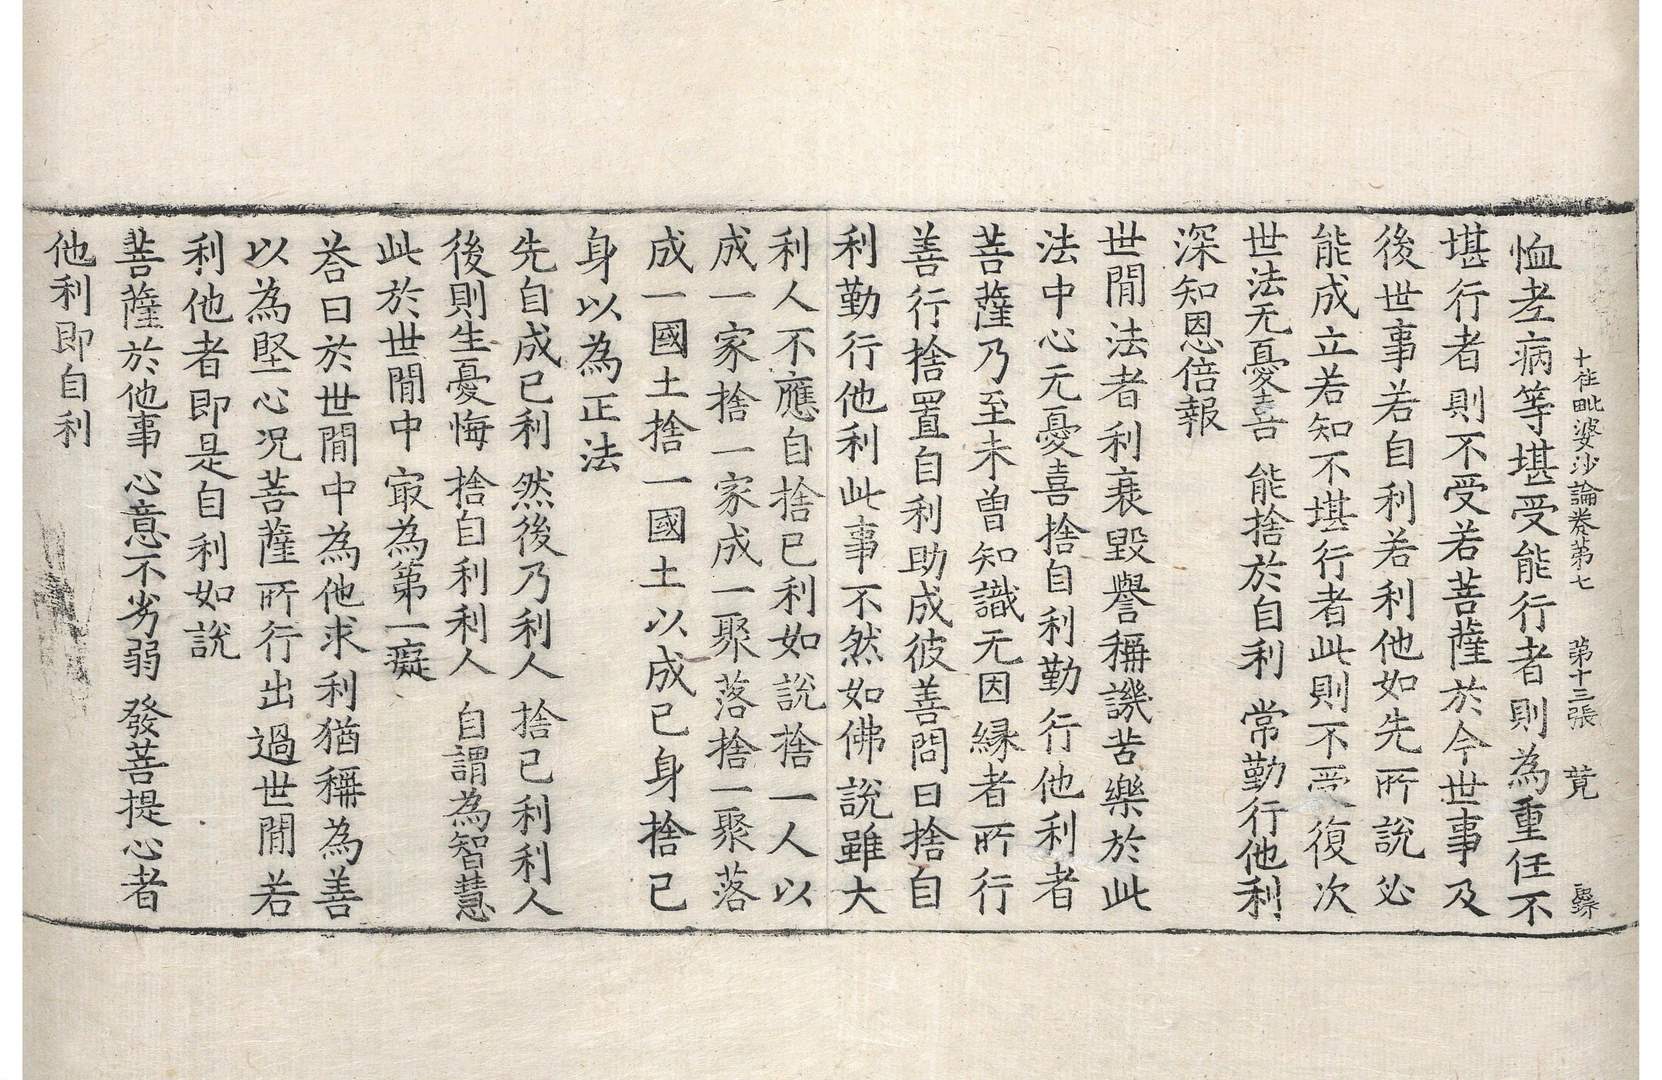 十住毗婆沙論卷第七　第十三張　莧
恤老病等堪受能行者則為重任不
堪行者則不受若菩薩於今世事及
後世事若自利若利他如先所說必
能成立若知不堪行者此則不受復次
世法无憂喜　能捨於自利　常勤行他利
深知恩倍報
世間法者利衰毀譽稱譏苦樂於此
法中心无憂喜捨自利勤行他利者
菩薩乃至未曾知識无因緣者所行
善行捨置自利助成彼善問曰捨自
利勤行他利此事不然如佛說雖大
利人不應自捨已利如說捨一人以
成一家捨一家成一聚落捨一聚落
成一國土捨一國土以成已身捨已
身以為正法
先自成已利　然後乃利人　捨已利利人
後則生憂悔　捨自利利人　自謂為智慧
此於世間中　寂為第一癡
荅曰於世間中為他求利猶稱為善
以為堅心况菩薩所行出過世間若
利他者即是自利如說
菩薩於他事　心意不劣弱　發菩提心者
他利即自利